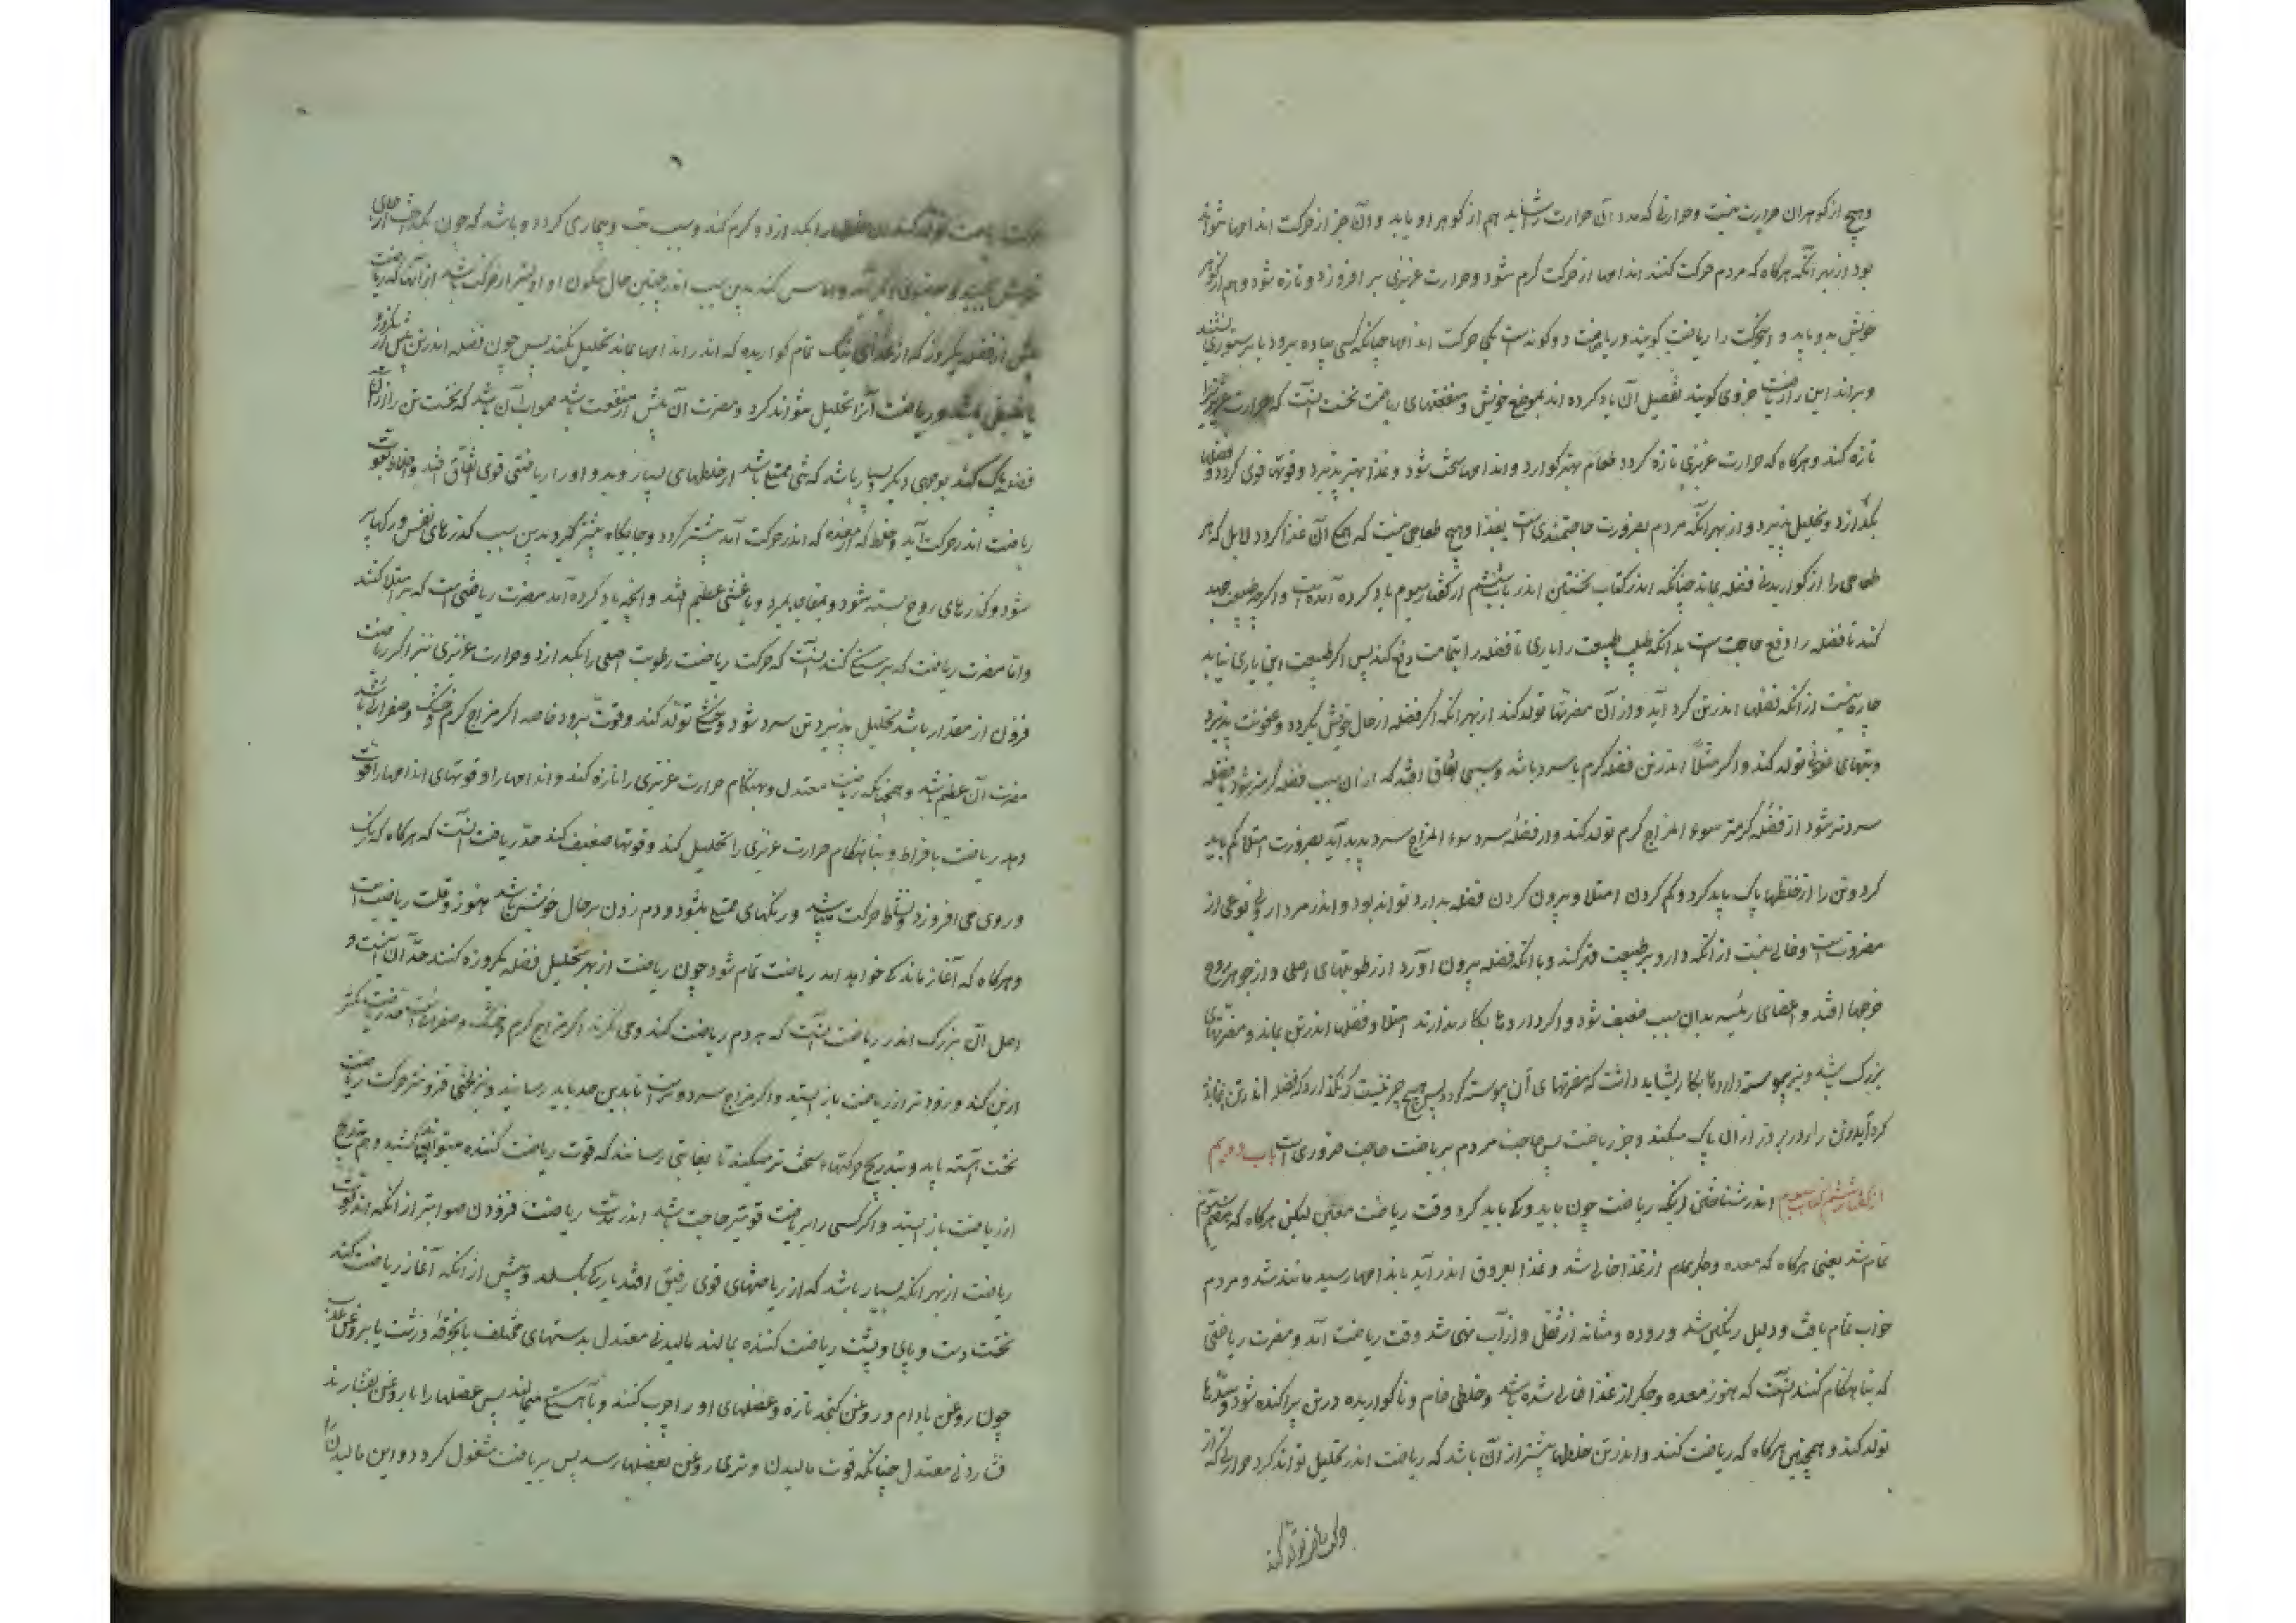 وهیچ از کوهران حرارت نیست وحرارتی که مدد آن حرارت را شاید هم از کوهر او باید وآن جز از حرکت اندامها نتواند
بود از بهر آنکه هرکاه که مردم حرکت کنند اندامها از حرکت کرم شود وحرارت غریزی بر افروزد و تازه شود وهم از کوهر
خویش مدد یابد و این حرکت را ریاضت کویند وریاضت دو کونه است یکی حرکت اندامها چنانکه کسی پیاده برود یا بر ستوری نشیند
وبراند این را ریاضت جزوی کویند تفصیل آن یاد کرده اند بموضع خویش ومنفعتهای ریاضت نخست اینست که حرارت غریزی را
تازه کند وهرکاه که حرارت غریزی تازه کردد طعام بهتر کوارد واندامها سخت شود وغذا بهتر پذیرد وقوتها قوی کردد و فضلها
بکدازد وتحلیل پذیرد واز بهر آنکه مردم بضرورت حاجتمند است بغذا وهیچ طعامی نیست که همکی آن غذا کردد لابل که هر
طعامی را از کواریدن فضله بماند چنانکه اندر کتاب نخستین اندر باب ششم از کفتار سیوم یاد کرده آمده است واکرچه طبیعت جهد
کند تا فضله را دفع حاجتست بدانکه طبیب طبیعت را یاری تا فضله را بتمامت دفع کند پس اکر طبیعت این یاری نیابد
چاره نیست از آنکه فضلها اندر تن کرد آید واز آن مضرتها تولد کند از بهر آنکه اکر فضله از حال خویش بکردد وعفونت پذیرد
وتبهای عفونی تولد کند واکر مثلاً اندر تن فضله کرم یا سرد باشد وسببی اتفاق افتد که از آن سبب فضله کرمتر شود یا فضله
سردتر شود از فضله کرمتر سوء المزاج کرم تولد کند واز فضله سرد سوء المزاج سرد پدید آید بضرورت امتلا کم باید
کرد وتن را از خلطها پاک باید کرد وکم کردن امتلا وبیرون کردن فضله بدارو تواند بود واندر هر داروئی نوعی از
مضرتست وخالی نیست از آنکه دارو بر طبیعت قهر کند وبا آنکه فضله بیرون آورد از رطوبتهای اصلی واز جوهر روح
خرجها افتد و اعضای رئیسه بدان سبب ضعیف شود واکر داروها بکار ندارند امتلا وفضلها اندر تن بماند ومضرتهای
بزرک باشد ونیز پیوسته داروها بکار نشاید داشت که مضرتهای آن پیوسته کردد پس هیچ چیز نیست که نکذارد که فضله اندر تن بماند
کرد آید وتن را روز بروز از آن پاک میکند وجز ریاضت پس حاجت مردم بریاضت حاجت ضروری است باب دویم
از کفتار ششم کتاب سیوم اندر شناختن اینکه ریاضت چون باید وکی باید کرد وقت ریاضت معین لیکن هرکاه که هضم
تمام شد یعنی هرکاه که معده وجکر تمام از غذا خالی شد وغذا بعروق اندر آید باندامها رسید مانند شد ومردم
خواب تمام یافت ودلیل رنکین شد وروده ومثانه از ثفل واز آب تهی شد وقت ریاضت آمد ومضرت ریاضتی
که نه بهنکام کنند آنست که هنوز معده وجکر از غذا خالی شده باشد وخلطی خام وناکواریده در تن پراکنده شود وسدها
تولد کند وهمچنین هرکاه که ریاضت کنند واندر تن خلطها بیشتر از آن باشد که ریاضت اندر تحلیل تواند کرد حرارتی که از
حرکت ریاضت تولد کند
حرکت ریاضت تولد کند آن خلطها را بکدازد وکرم کند وسبب تب وبیماری کردد وباشد که چون بکداخت از جای
خویش بجنبد و بعضوی وماس کند بدین سبب اندر چنین حال سکون او اولیتر از حرکت باشد از آنکه ریاضت
بیش از فضله یکروزه که از غذای نیک تمام کواریده که اندر اندامها بماند تحلیل نکند پس چون فضله اندر تن بیش از یکروزه
یا غلیظ باشد وریاضت آنرا تحلیل نتواند کرد ومضرت آن بیش از منفعت باشد صواب آن باشد که نخست تن را از آن
فضله پاک کنند بوجهی دیکر بسیار باشد که تنی ممتلی باشد از خلطهای بسیار وبد واو را ریاضتی قوی اتفاق افتد واخلاط بقوت
ریاضت اندر حرکت آید وخلط که اندر حرکت آمد بیشتر کردد وجایکاه بیشتر کیرد بدین سبب کذرهای نفس ورکها پر
شود وکذرهای روح بسته شود وبمفاجا بمیرد ویا غشی عظیم افتد وآنچه یاد کرده آمد مضرت ریاضتی است که بر امتلا کنند
واما مضرت ریاضت که بر کرسنکی کنند آنست که حرکت ریاضت رطوبت اصلی را بکدازد وحرارت غریزی نیز اکر ریاضت
فزون از مقدار باشد تحلیل پذیرد تن سرد شود وخشکی تولد کند وقوت ببرد خاصه اکر مزاج کرم وخشک وصفرائی باشد
مضرت آن عظیم باشد وهمچنانکه ریاضت معتدل وبهنکام حرارت غریزی را تازه کند واندامها را وقوتهای اندامها را قوت
دهد ریاضت بافراط وبنا هنکام حرارت غریزی را تحلیل کند وقوتها ضعیف کند حد ریاضت آنست که هرکاه که رنک
وروی می افروزد ونشاط حرکت میباشد ورکهای ممتلی بشود ودم زدن بر حال خویش باشد هنوز وقت ریاضت است
وهرکاه که آغاز ماندکی خواهد آمد ریاضت تمام شود چون ریاضت از بهر تحلیل فضله یکروزه کنند حد آن آنست و
اصل آن بزرک اندر ریاضت آنست که هر دم ریاضت کند ومی نکرند اکر مزاج کرم وخشک وصفرائیست قدر ریاضت کمتر
ازین کند وزودتر از ریاضت باز ایستد واکر مزاج سرد وتر است تا بدین حد باید رسانید ونیز لختی فزونتر حرکت ریاضت
نخست آهسته باید وبتدریج حرکتها سخت تر میکند تا بغایتی رسانند که قوت ریاضت کننده میتواند کشید وهم بتدریج
از ریاضت باز ایستد واکر کسی را بریاضت قویتر حاجت باشد اندر مدت ریاضت فزودن صوابتر از آنکه اندر قوت
ریاضت از بهر آنکه بسیار باشد که از ریاضتهای قوی رفیق افتد یا رکی بکسلد وپیش از آنکه آغاز ریاضت کند
نخست دست وپای وپشت ریاضت کننده بمالند مالیدنی معتدل بدستهای مختلف یا بخرقه درشت یا بروغن
چون روغن بادام وروغن کنجد تازه وعضلهای او را چرب کنند وبآهستکی میمالند پس عضلها را با روغن بفشارند
فشاردنی معتدل چنانکه قوت مالیدن وتری روغن بعضلها رسد پس بریاضت مشغول کردد واین مالیدن را